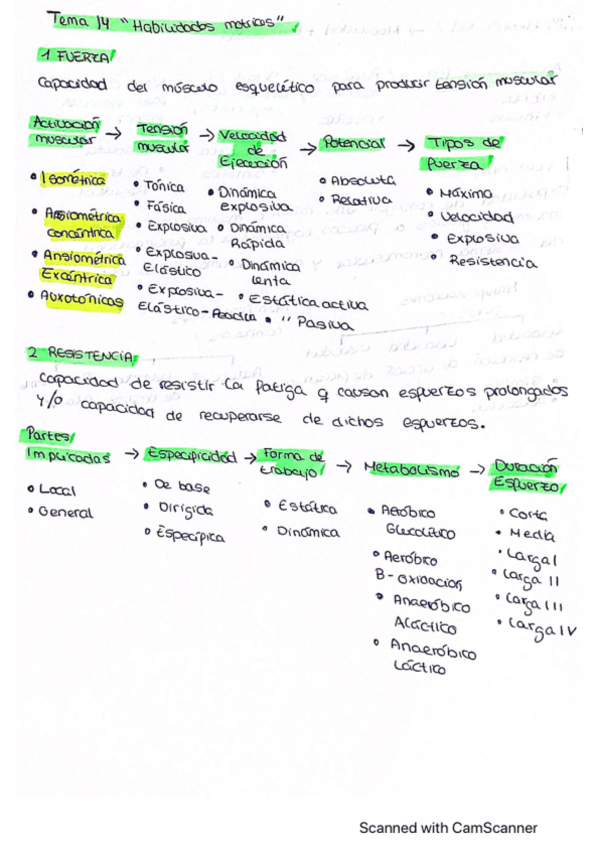 Tema 14 "Habilidades motrices"
1 FUERZA
Capacidad del músculo esquelético para producir tensión muscular
Activación muscular → Tensión muscular → Velocidad de Ejecución → Potencial → Tipos de fuerza
• Isométrica
• Anisométrica concéntrica
• Ansiométrica Excéntrica
• Auxotónicas
• Tónica
• Fásica
• Explosiva
• Explosiva-Elástico
• Explosiva-Elástico-Reactiva
• Dinámica explosiva
• Dinámica Rápida
• Dinámica lenta
• Estática activa
• " Pasiva
• Absoluta
• Relativa
• Máxima
• Velocidad
• Explosiva
• Resistencia
2 RESISTENCIA
Capacidad de resistir la fatiga q causan esfuerzos prolongados
y/o capacidad de recuperarse de dichos esfuerzos.
Partes Implicadas → Especificidad → Forma de trabajo → Metabolismo → Duración Esfuerzo
• Local
• General
• De base
• Dirigida
• Específica
• Estática
• Dinámica
• Aeróbico Glucolítico
• Aeróbico B-oxidación
• Anaeróbico Aláctico
• Anaeróbico láctico
• Corta
• Media
• Larga I
• Larga II
• Larga III
• Larga IV
Scanned with CamScanner